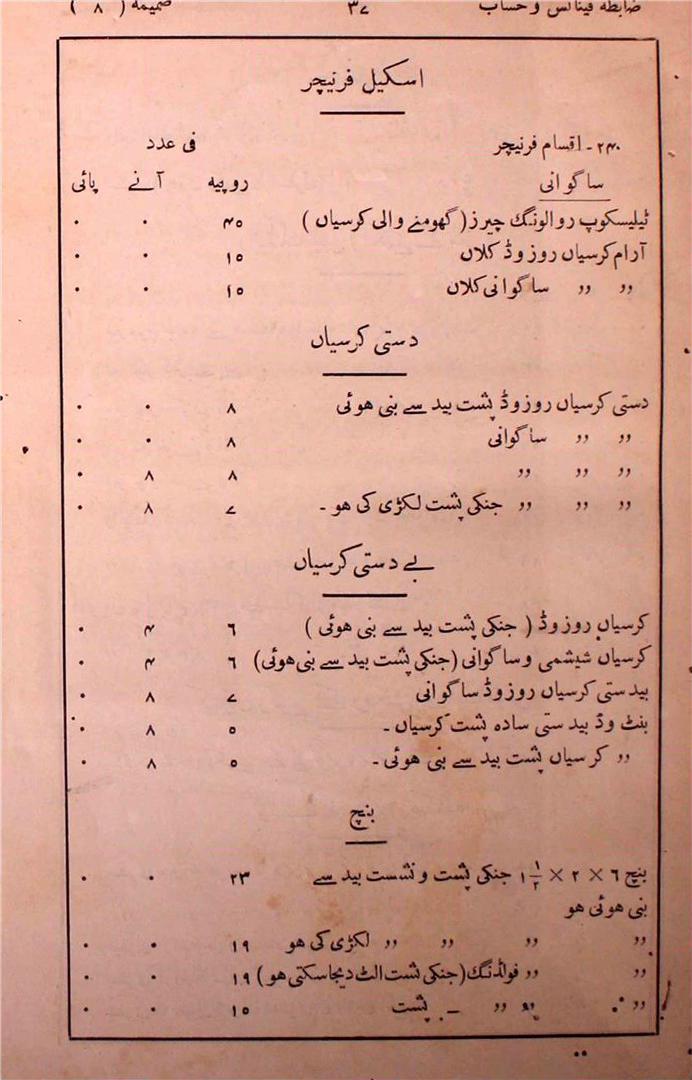 ضابطه فینانس و حساب ۳۷ ضمیمه ( ۸ )
اسکیل فرنیچر
۲۴۰ ۔ اقسام فرنیچر فی عدد
ساگوانی روپیه آنے پائی
ٹیلیسکوپ روالونگ چیرز ( گھومنے والی کرسیاں ) ۴۵ ۰ ۰
آرام کرسیاں روز وڈ کلاں ۱۵ ۰ ۰
,, ,, ساگوانی کلاں ۱۵ ۰ ۰
دستی کرسیاں
دستی کرسیاں روز وڈ پشت بید سے بنی هوئی ۸ ۰ ۰
,, ,, ساگوانی ۸ ۰ ۰
,, ,, ,, ۸ ۸ ۰
,, ,, ,, جنکی پشت لکڑی کی هو ۔ ۷ ۸ ۰
بے دستی کرسیاں
کرسیاں روز وڈ ( جنکی پشت بید سے بنی هوئی ) ۶ ۴ ۰
کرسیاں شیشمی و ساگوانی (جنکی پشت بید سے بنی هوئی) ۶ ۴ ۰
بیدستی کرسیاں روز وڈ ساگوانی ۷ ۸ ۰
بنٹ وڈ بیدستی ساده پشت کرسیاں ۔ ۵ ۸ ۰
,, کرسیاں پشت بید سے بنی هوئی ۔ ۵ ۸ ۰
بنچ
بنچ ۶ × ۲ × ۱ ۱/۲ جنکی پشت و نشست بید سے ۲۳ ۰ ۰
بنی هوئی هو
,, ,, ,, ,, لکڑی کی هو ۱۹ ۰ ۰
,, ,, فولڈنگ (جنکی پشت الٹ دیجاسکتی هو) ۱۹ ۰ ۰
,, ,, ,, ــ پشت ۱۵ ۰ ۰